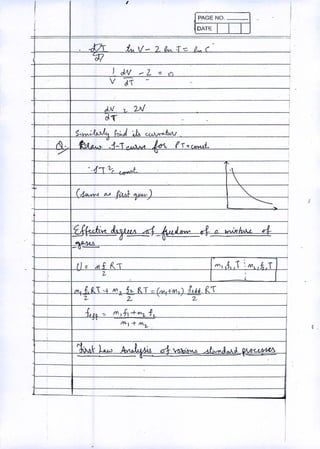 PAGE NO.
DATE
ln V - 2 ln T = ln C
1 dV - 2 = 0
V dT
dV = 2V
dT
Similarly find its curvature
Q. Draw f-T curve for PT = const.
fT² = const.
(Same as first year)
Effective degrees of freedom of a mixture of
gases
U = nfRT
2
n₁, f₁, T
n₂, f₂, T
n₁ f₁RT + n₂ f₂ RT = (n₁+n₂) feff RT
2 2 2
feff = n₁f₁ + n₂ f₂
n₁ + n₂
First Law Analysis of various standard processes